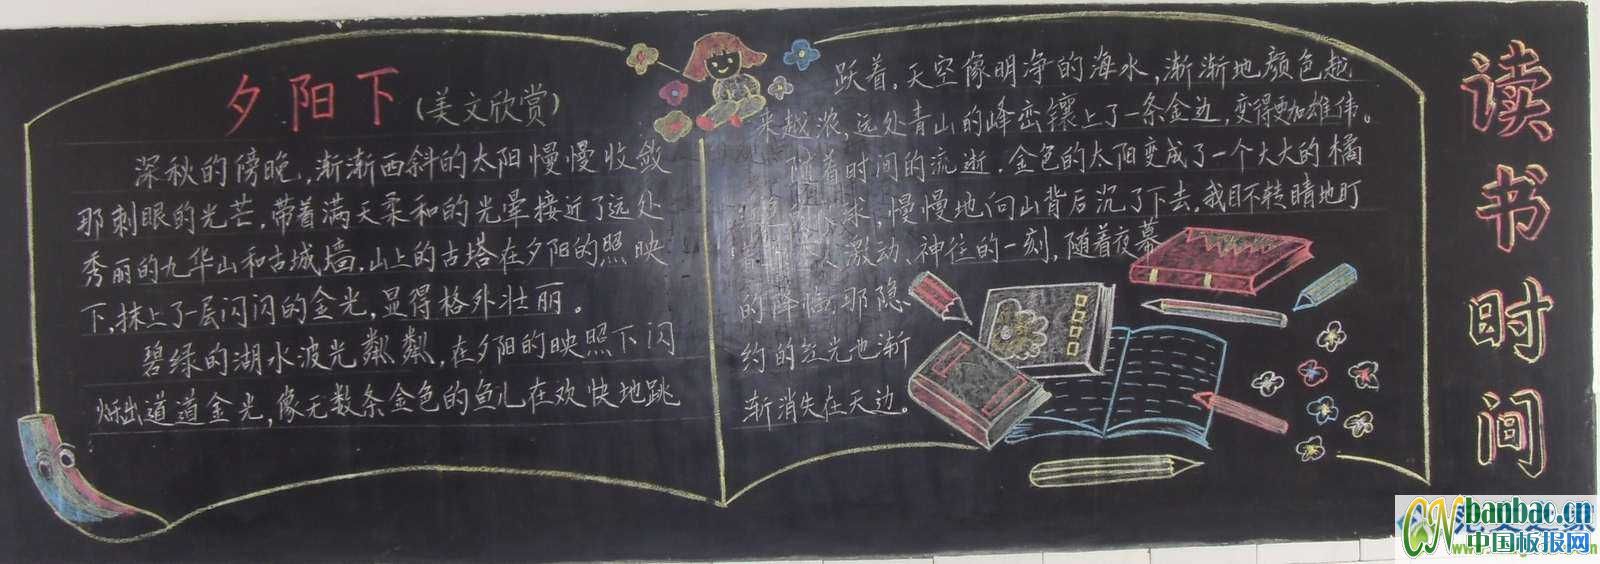 夕阳下(美文欣赏)
深秋的傍晚,渐渐西斜的太阳慢慢收敛
那刺眼的光芒,带着满天柔和的光晕接近了远处
秀丽的九华山和古城墙,山上的古塔在夕阳的照映
下,抹上了一层闪闪的金光,显得格外壮丽。
碧绿的湖水波光粼粼,在夕阳的映照下闪
烁出道道金光,像无数条金色的鱼儿在欢快地跳
跃着,天空像明净的海水,渐渐地颜色越
来越浓,远处青山的峰峦镶上了一条金边,变得更加雄伟。
随着时间的流逝,金色的太阳变成了一个大大的橘
球,慢慢地向山背后沉了下去,我目不转睛地盯
激动、神往的一刻,随着夜幕
的降临,那隐
约的红光也渐
渐消失在天边。
读书时间
banbao.cn
中国板报网